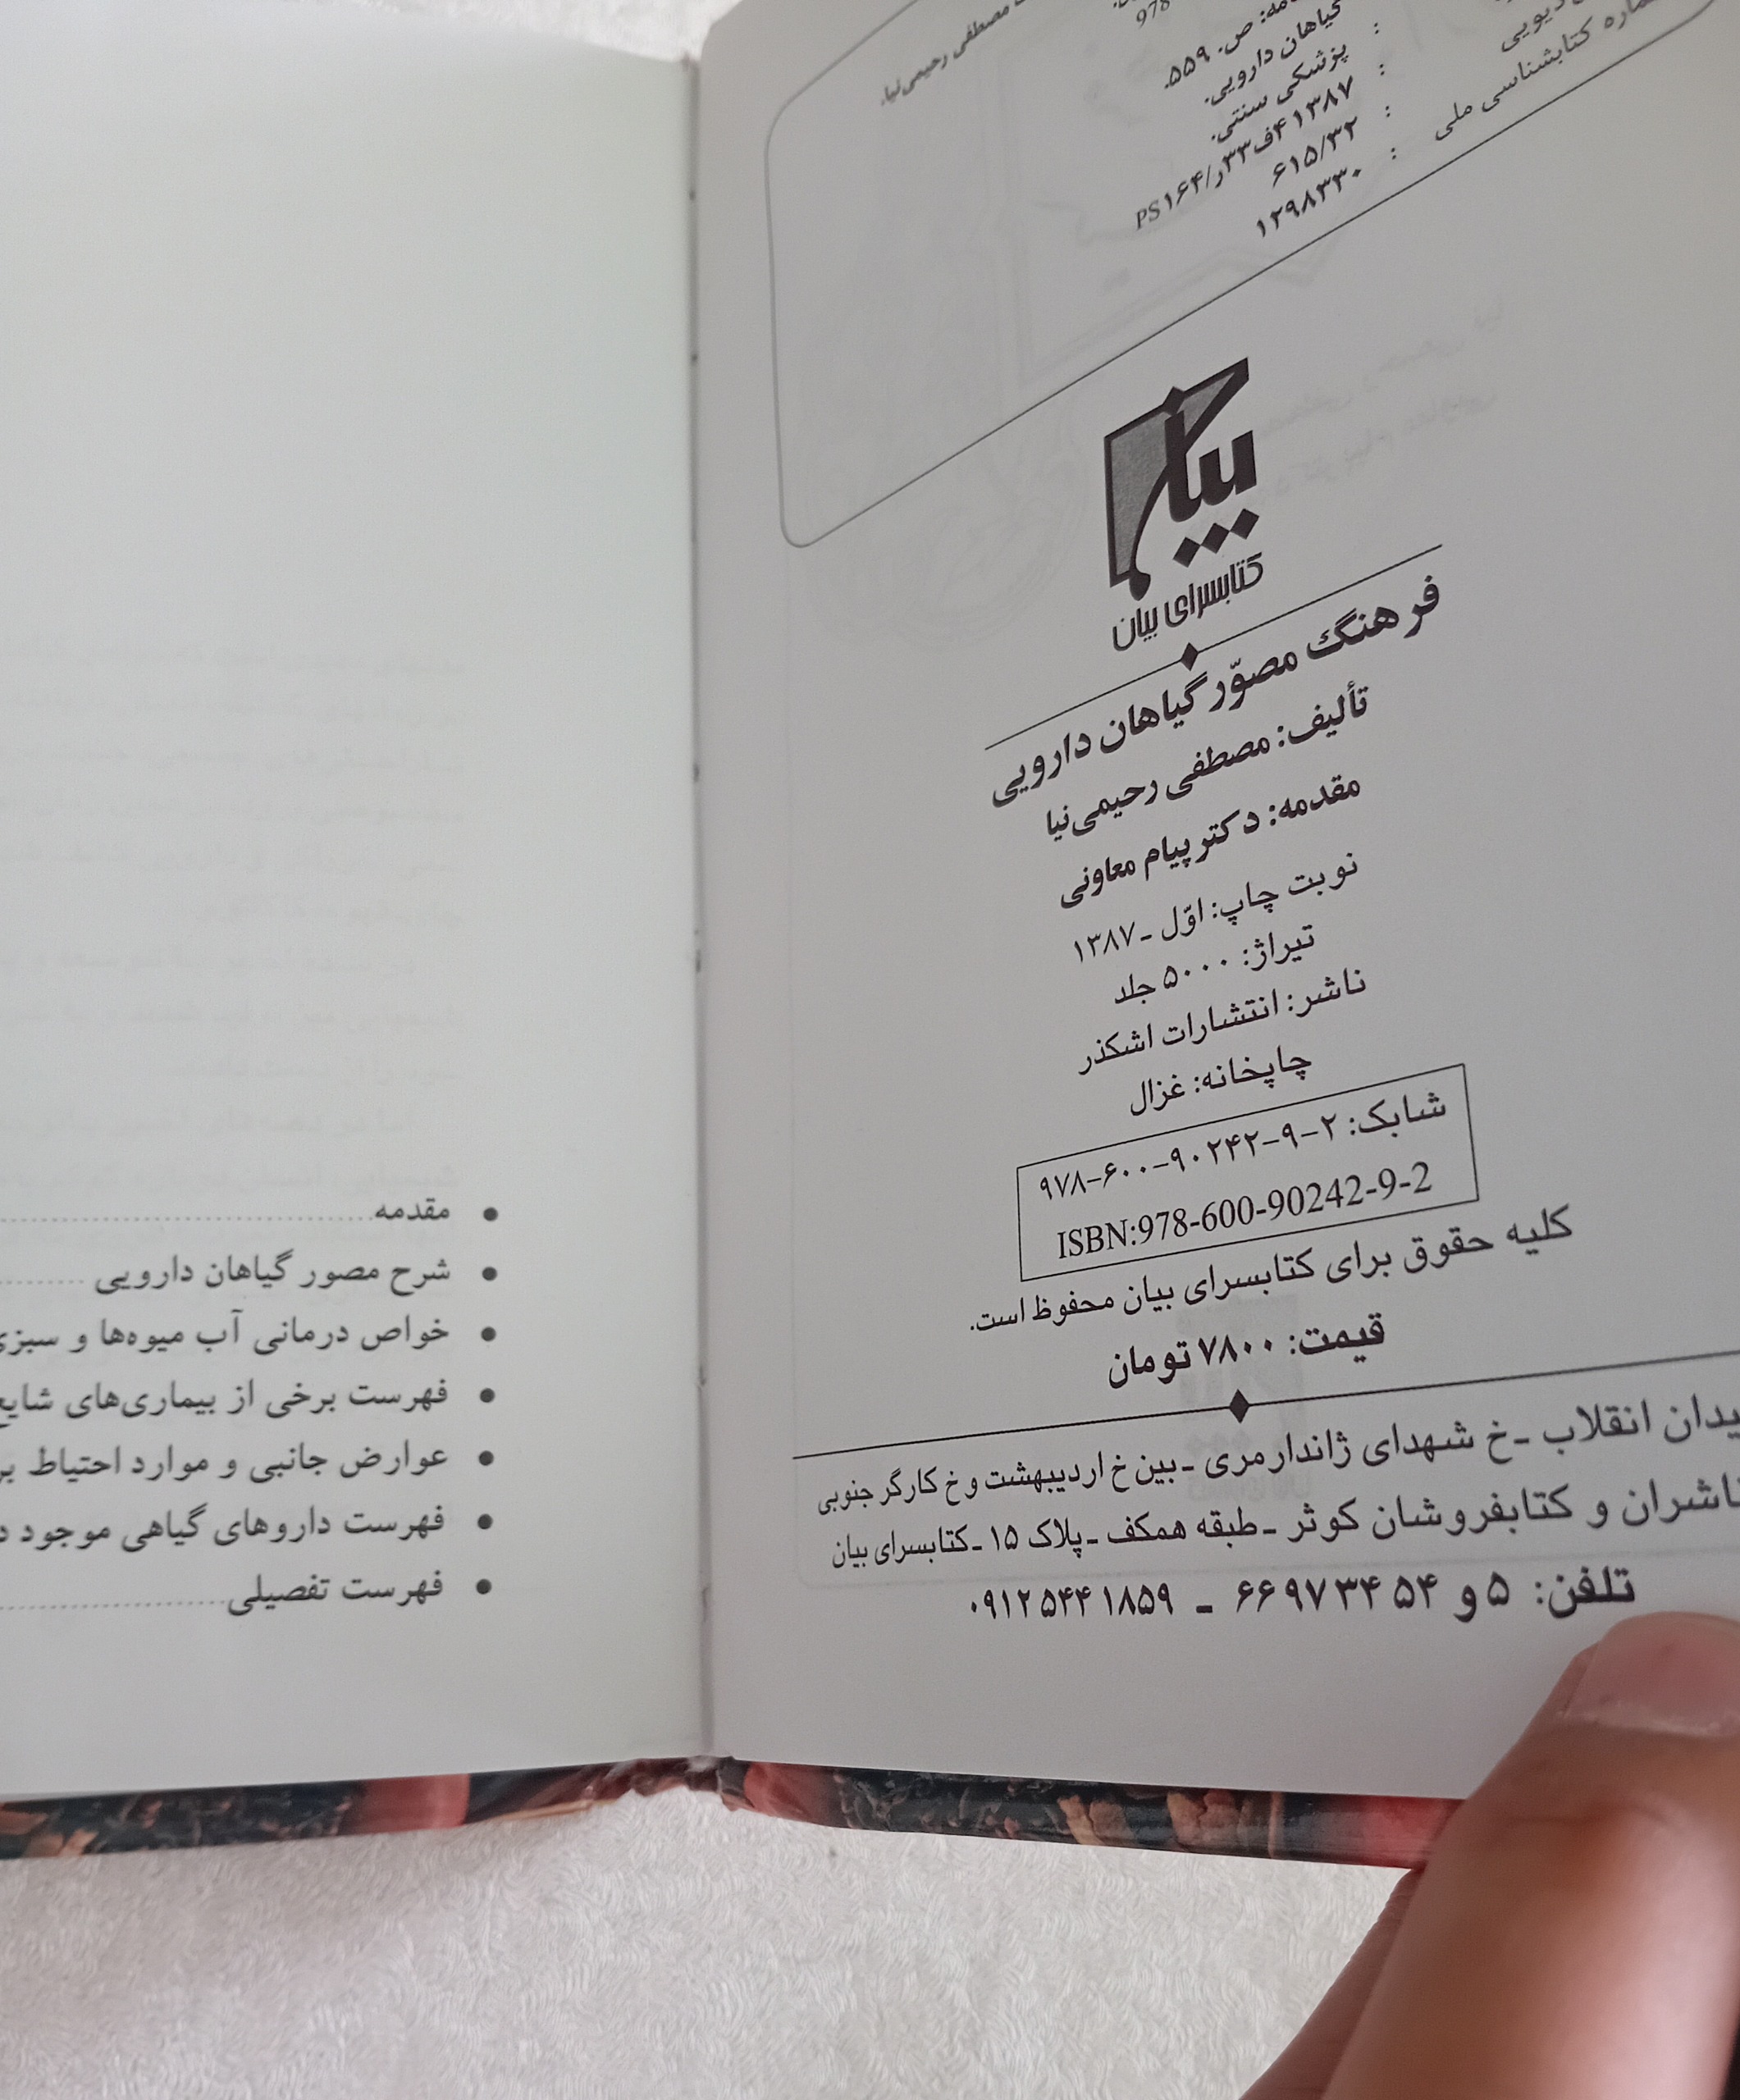 مصطفی رحیمی‌نیا.
978
ص. ۵۵۹.
گیاهان دارویی.
پزشکی سنتی.
۱۳۸۷ ۴ف۳۳ر/PS۱۶۴
دیویی : ۶۱۵/۳۲
کتابشناسی ملی : ۱۲۹۸۳۳۰
بیان
کتابسرای بیان
فرهنگ مصوّر گیاهان دارویی
تألیف: مصطفی رحیمی‌نیا
مقدمه: دکتر پیام معاونی
نوبت چاپ: اوّل ـ ۱۳۸۷
تیراژ: ۵۰۰۰ جلد
ناشر: انتشارات اشکذر
چاپخانه: غزال
شابک: ۲-۹-۹۰۲۴۲-۶۰۰-۹۷۸
ISBN:978-600-90242-9-2
کلیه حقوق برای کتابسرای بیان محفوظ است.
قیمت: ۷۸۰۰ تومان
انقلاب ـ خ شهدای ژاندارمری ـ بین خ اردیبهشت و خ کارگر جنوبی
ناشران و کتابفروشان کوثر ـ طبقه همکف ـ پلاک ۱۵ ـ کتابسرای بیان
تلفن: ۵ و ۵۴ ۳۴ ۹۷ ۶۶ ـ ۱۸۵۹ ۵۴۴ ۰۹۱۲
• مقدمه
• شرح مصور گیاهان دارویی
• خواص درمانی آب میوه‌ها و
• فهرست برخی از بیماری‌های شایع
• عوارض جانبی و موارد احتیاط
• فهرست داروهای گیاهی موجود
• فهرست تفصیلی